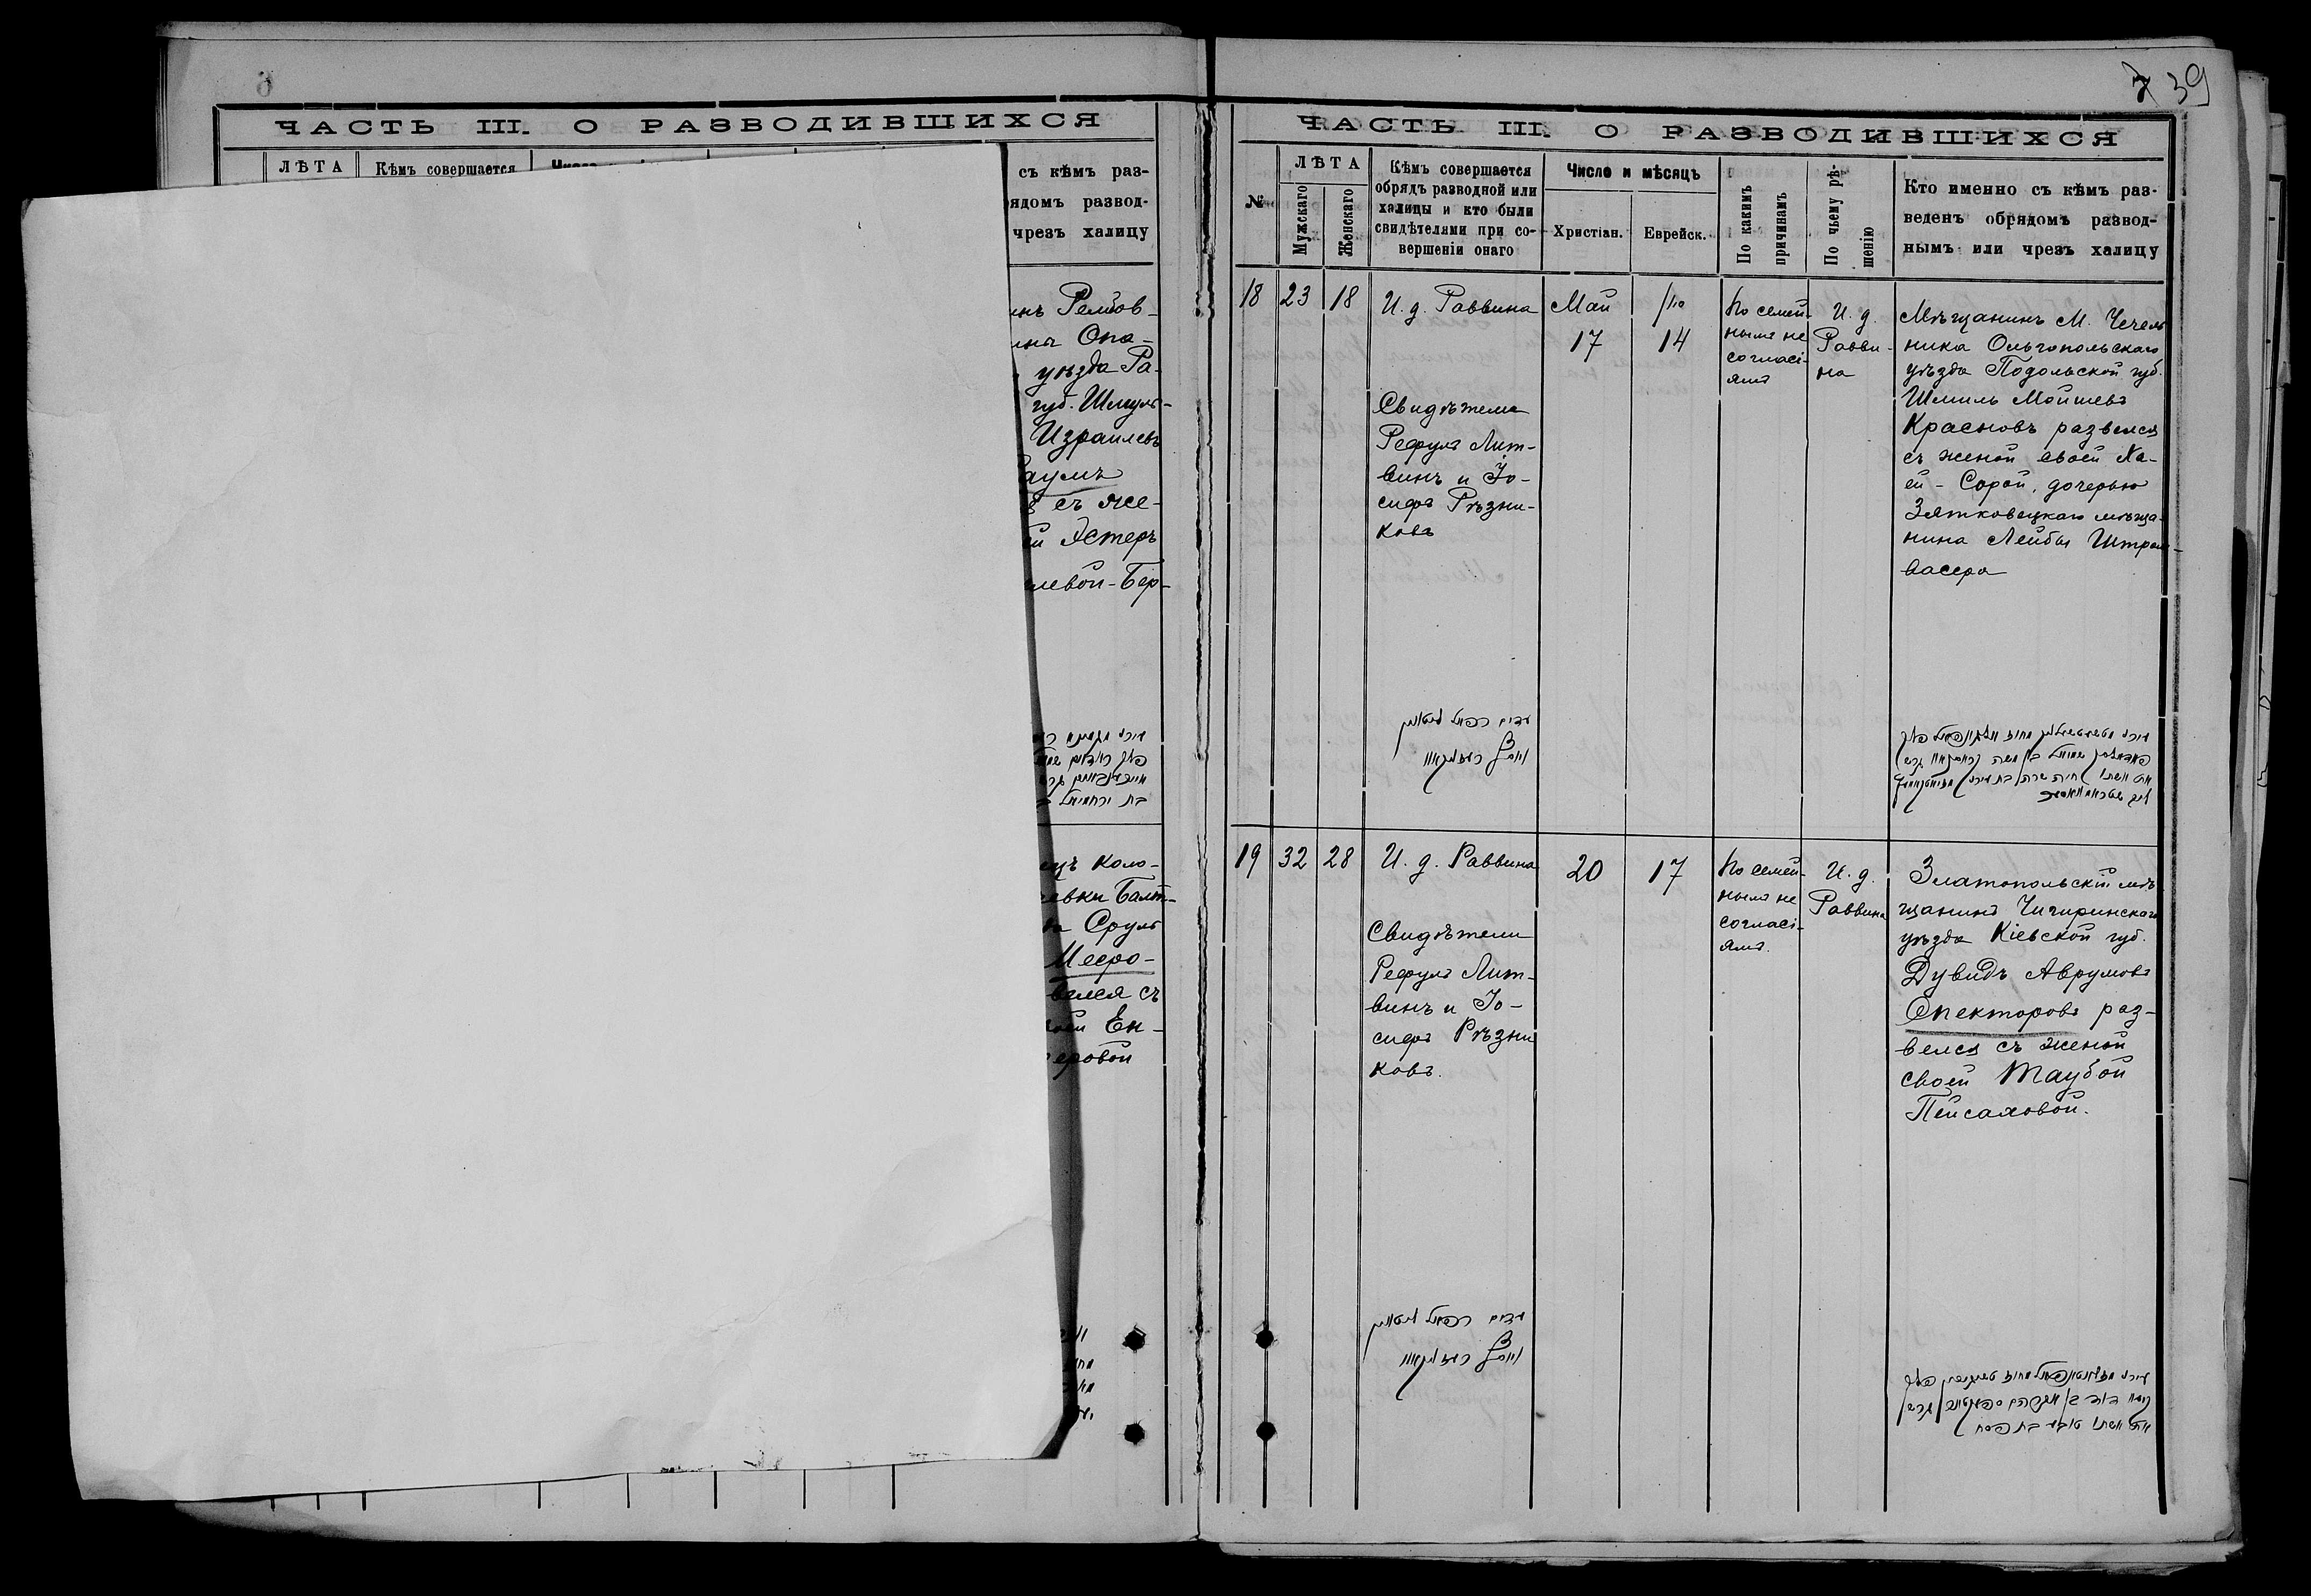 ЧАСТЬ III. О РАЗВОДИВШИХСЯ
ЛѢТА
Кѣмъ совершается
съ кѣмъ раз-
рядомъ развод-
чрезъ халицу
Опа-
уѣзда Ра-
губ. Шмуль-
Израилевъ
съ же-
Эстеръ
Бер-
Коло-
Балт-
Сруль
Меєро-
велся съ
Ен-
еровой
39
ЧАСТЬ III. О РАЗВОДИВШИХСЯ
№
ЛѢТА
Мужскаго
Женскаго
Кѣмъ совершается
обрядъ разводной или
халицы и кто были
свидѣтелями при со-
вершеніи онаго
Число и мѣсяцъ
Христіан.
Еврейск.
По какимъ
причинамъ
По чьему рѣ-
шенію
Кто именно съ кѣмъ раз-
веденъ обрядомъ развод-
нымъ или чрезъ халицу
18
23
18
И. д. Раввина
Свидѣтели
Рефулъ Лит-
винъ и Іо-
сифъ Рѣзни-
ковъ
Май
17
14
По семей-
нымъ не
согласі-
ямъ
И. д.
Равви-
на
Мѣщанинъ М. Чечель
ника Ольгопольскаго
уѣзда Подольской губ.
Шмиль Мойшевъ
Красновъ развелся
съ женой своей Ха-
ей-Сорой, дочерью
Зятковецкаго мѣща-
нина Лейбы Штром-
васера
עדים רפאל ליטווין
יוסף רעזניקאוו
19
32
28
И. д. Раввина
Свидѣтели
Рефулъ Лит-
винъ и Іо-
сифъ Рѣзни
ковъ.
20
17
По семей-
нымъ не
согласі-
ямъ.
И. д.
Раввина
Златопольскій мѣ-
щанинъ Чигиринскаго
уѣзда Кіевской губ.
Дувидъ Аврумовъ
Спекторовъ раз-
велся съ женой
своей Таубой
Пейсаховой.
עדים רפאל ליטווין
יוסף רעזניקאוו